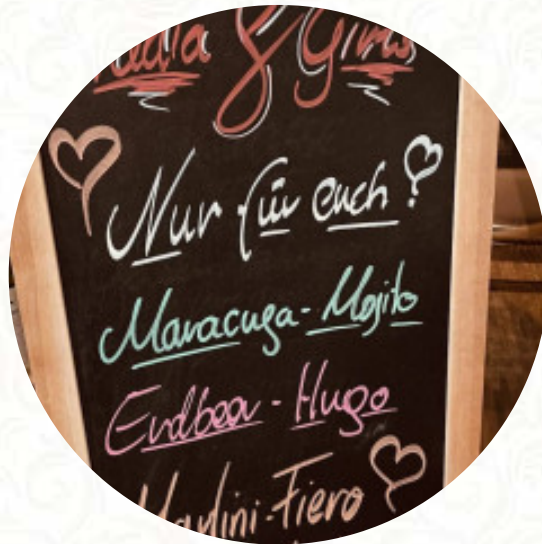 & Gino
Nur für euch!
Maracuja-Mojito
Erdbeer-Hugo
Martini-Fiero